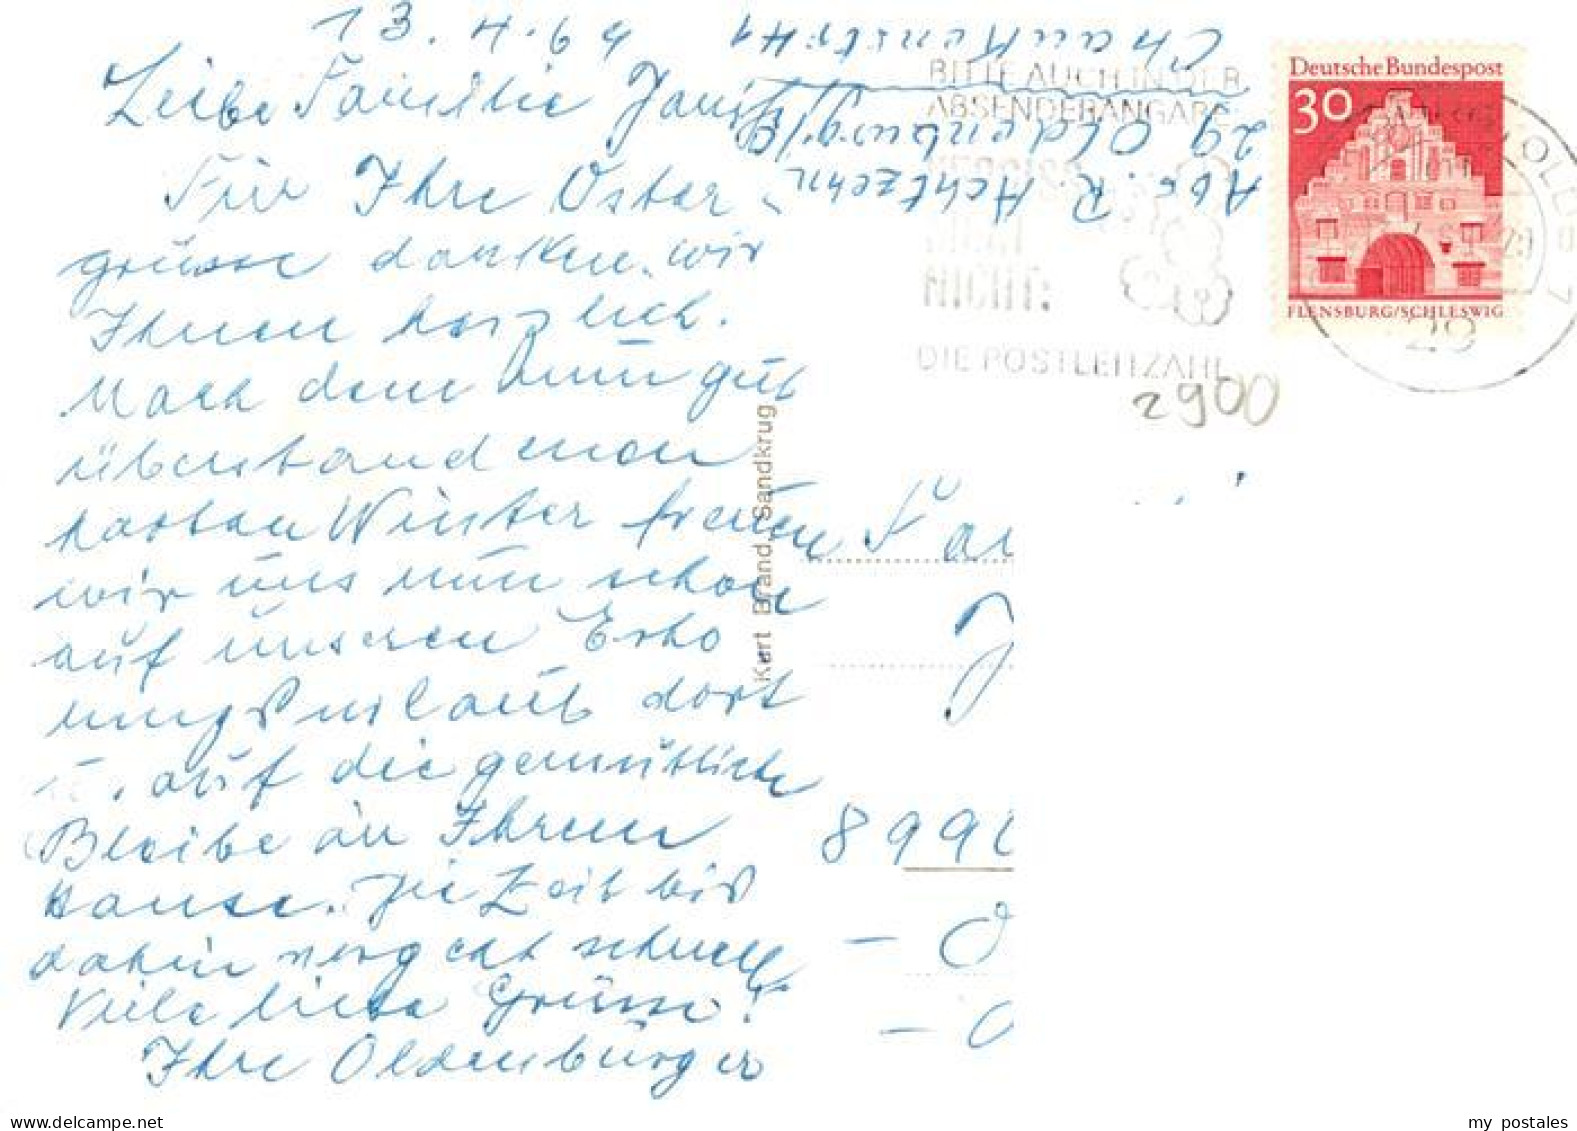 13.4.69
Leibe Familie
Für Ihre Oster-
grüsse danken wir
Ihnen herzlich.
Nach dem nun gut
überstandenen
harten Winter freuen
wir uns nun schon
auf unseren Erho
ungsurlaub dort
u. auf die gemütliche
Bleibe in Ihrem
Hause. Die Zeit bis
dahin vergeht schnell
Viele liebe Grüsse!
Ihre Oldenburger
Abs. R. Achtzehn
29 Oldenburg/O
Chaukenstr. 41
BITTE AUCH IN DER
ABSENDERANGABE
NICHT:
DIE POSTLEITZAHL
Deutsche Bundespost
30
FLENSBURG/SCHLESWIG
29
2900
Kurt Brand, Sandkrug
Fa
J
899
my postales